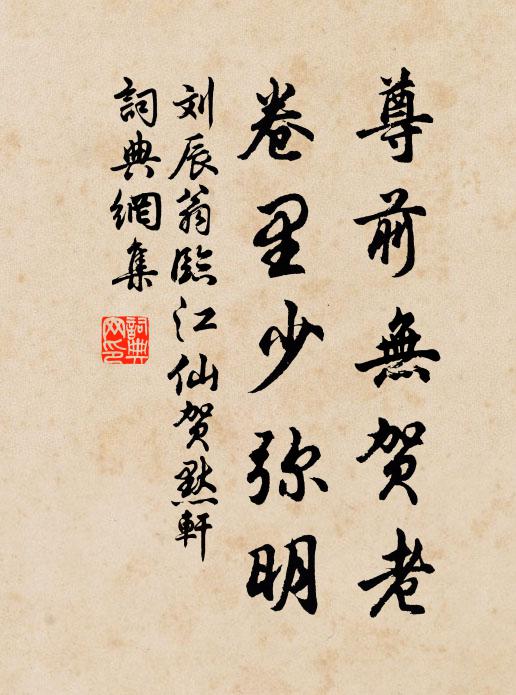 尊前無贺老
卷里少弥明
刘辰翁臨江仙贺默軒
詞典網集
詞典网印